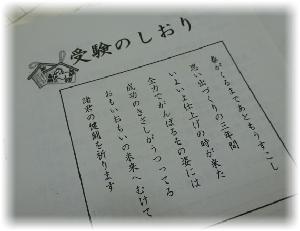 受験のしおり
春がくるまであともうすこし
思い出づくりの三年間
いよいよ仕上げの時が来た
全力でがんばるその姿には
成功のきざしがうつってる
おもいおもいの未来へむけて
諸君の健闘を祈ります